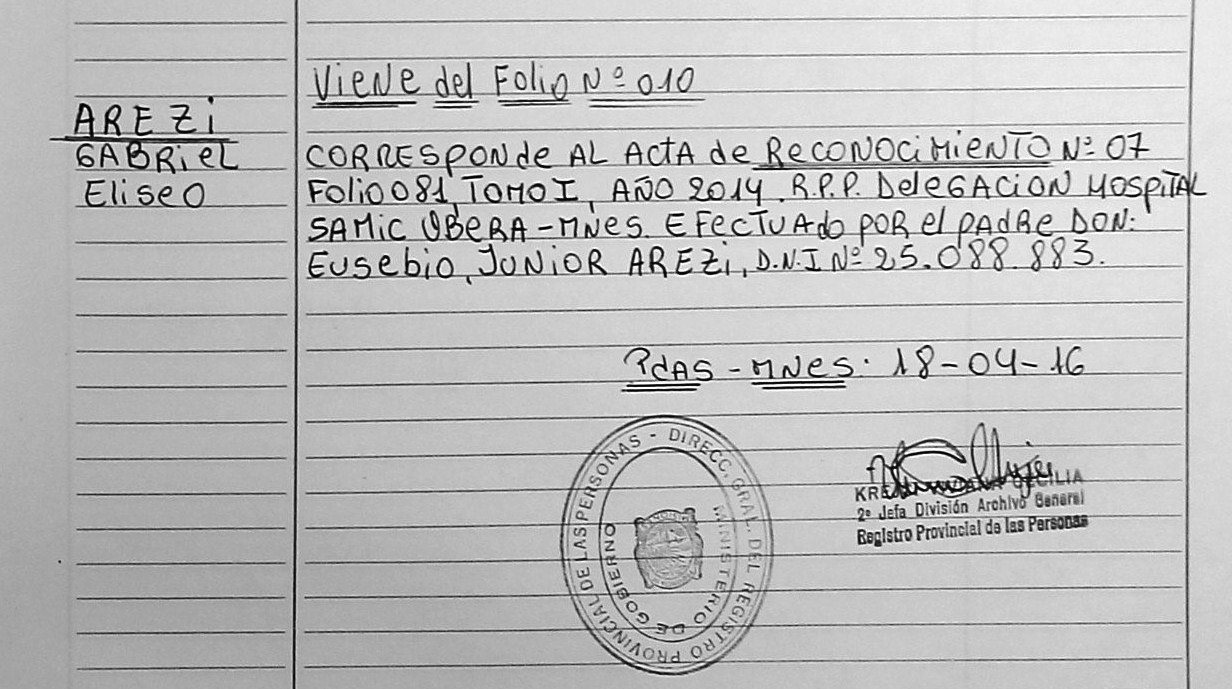 Viene del Folio Nº 010
AREZi
GABRiel
Eliseo
CORResponde AL ActA de ReconociMieNTO Nº 07
Folio 081, TOMO I, AÑO 2014. R.P.P. DeleGACiON HOSPiTAL
SAMic OBeRA-MNes. EFecTUAdo POR el PADRe DON:
Eusebio, JUNiOR AREZi, D.N.I Nº 25.088.883.
PdAS - MNes. 18-04-16
DIRECC. GRAL. DEL REGISTRO PROVINCIAL DE LAS PERSONAS -
MINISTERIO DE GOBIERNO
CECILIA
2º Jefa División Archivo General
Registro Provincial de las Personas